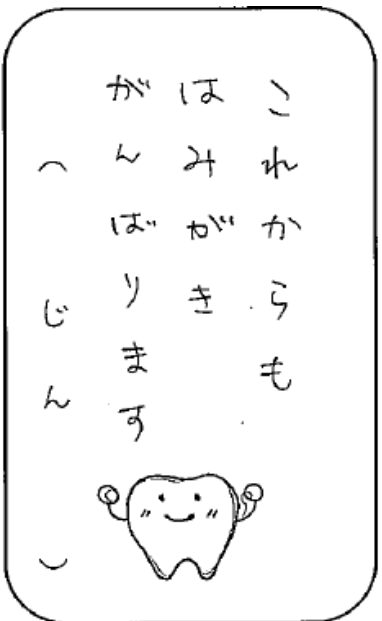 これからも
はみがき
がんばります
（じん）